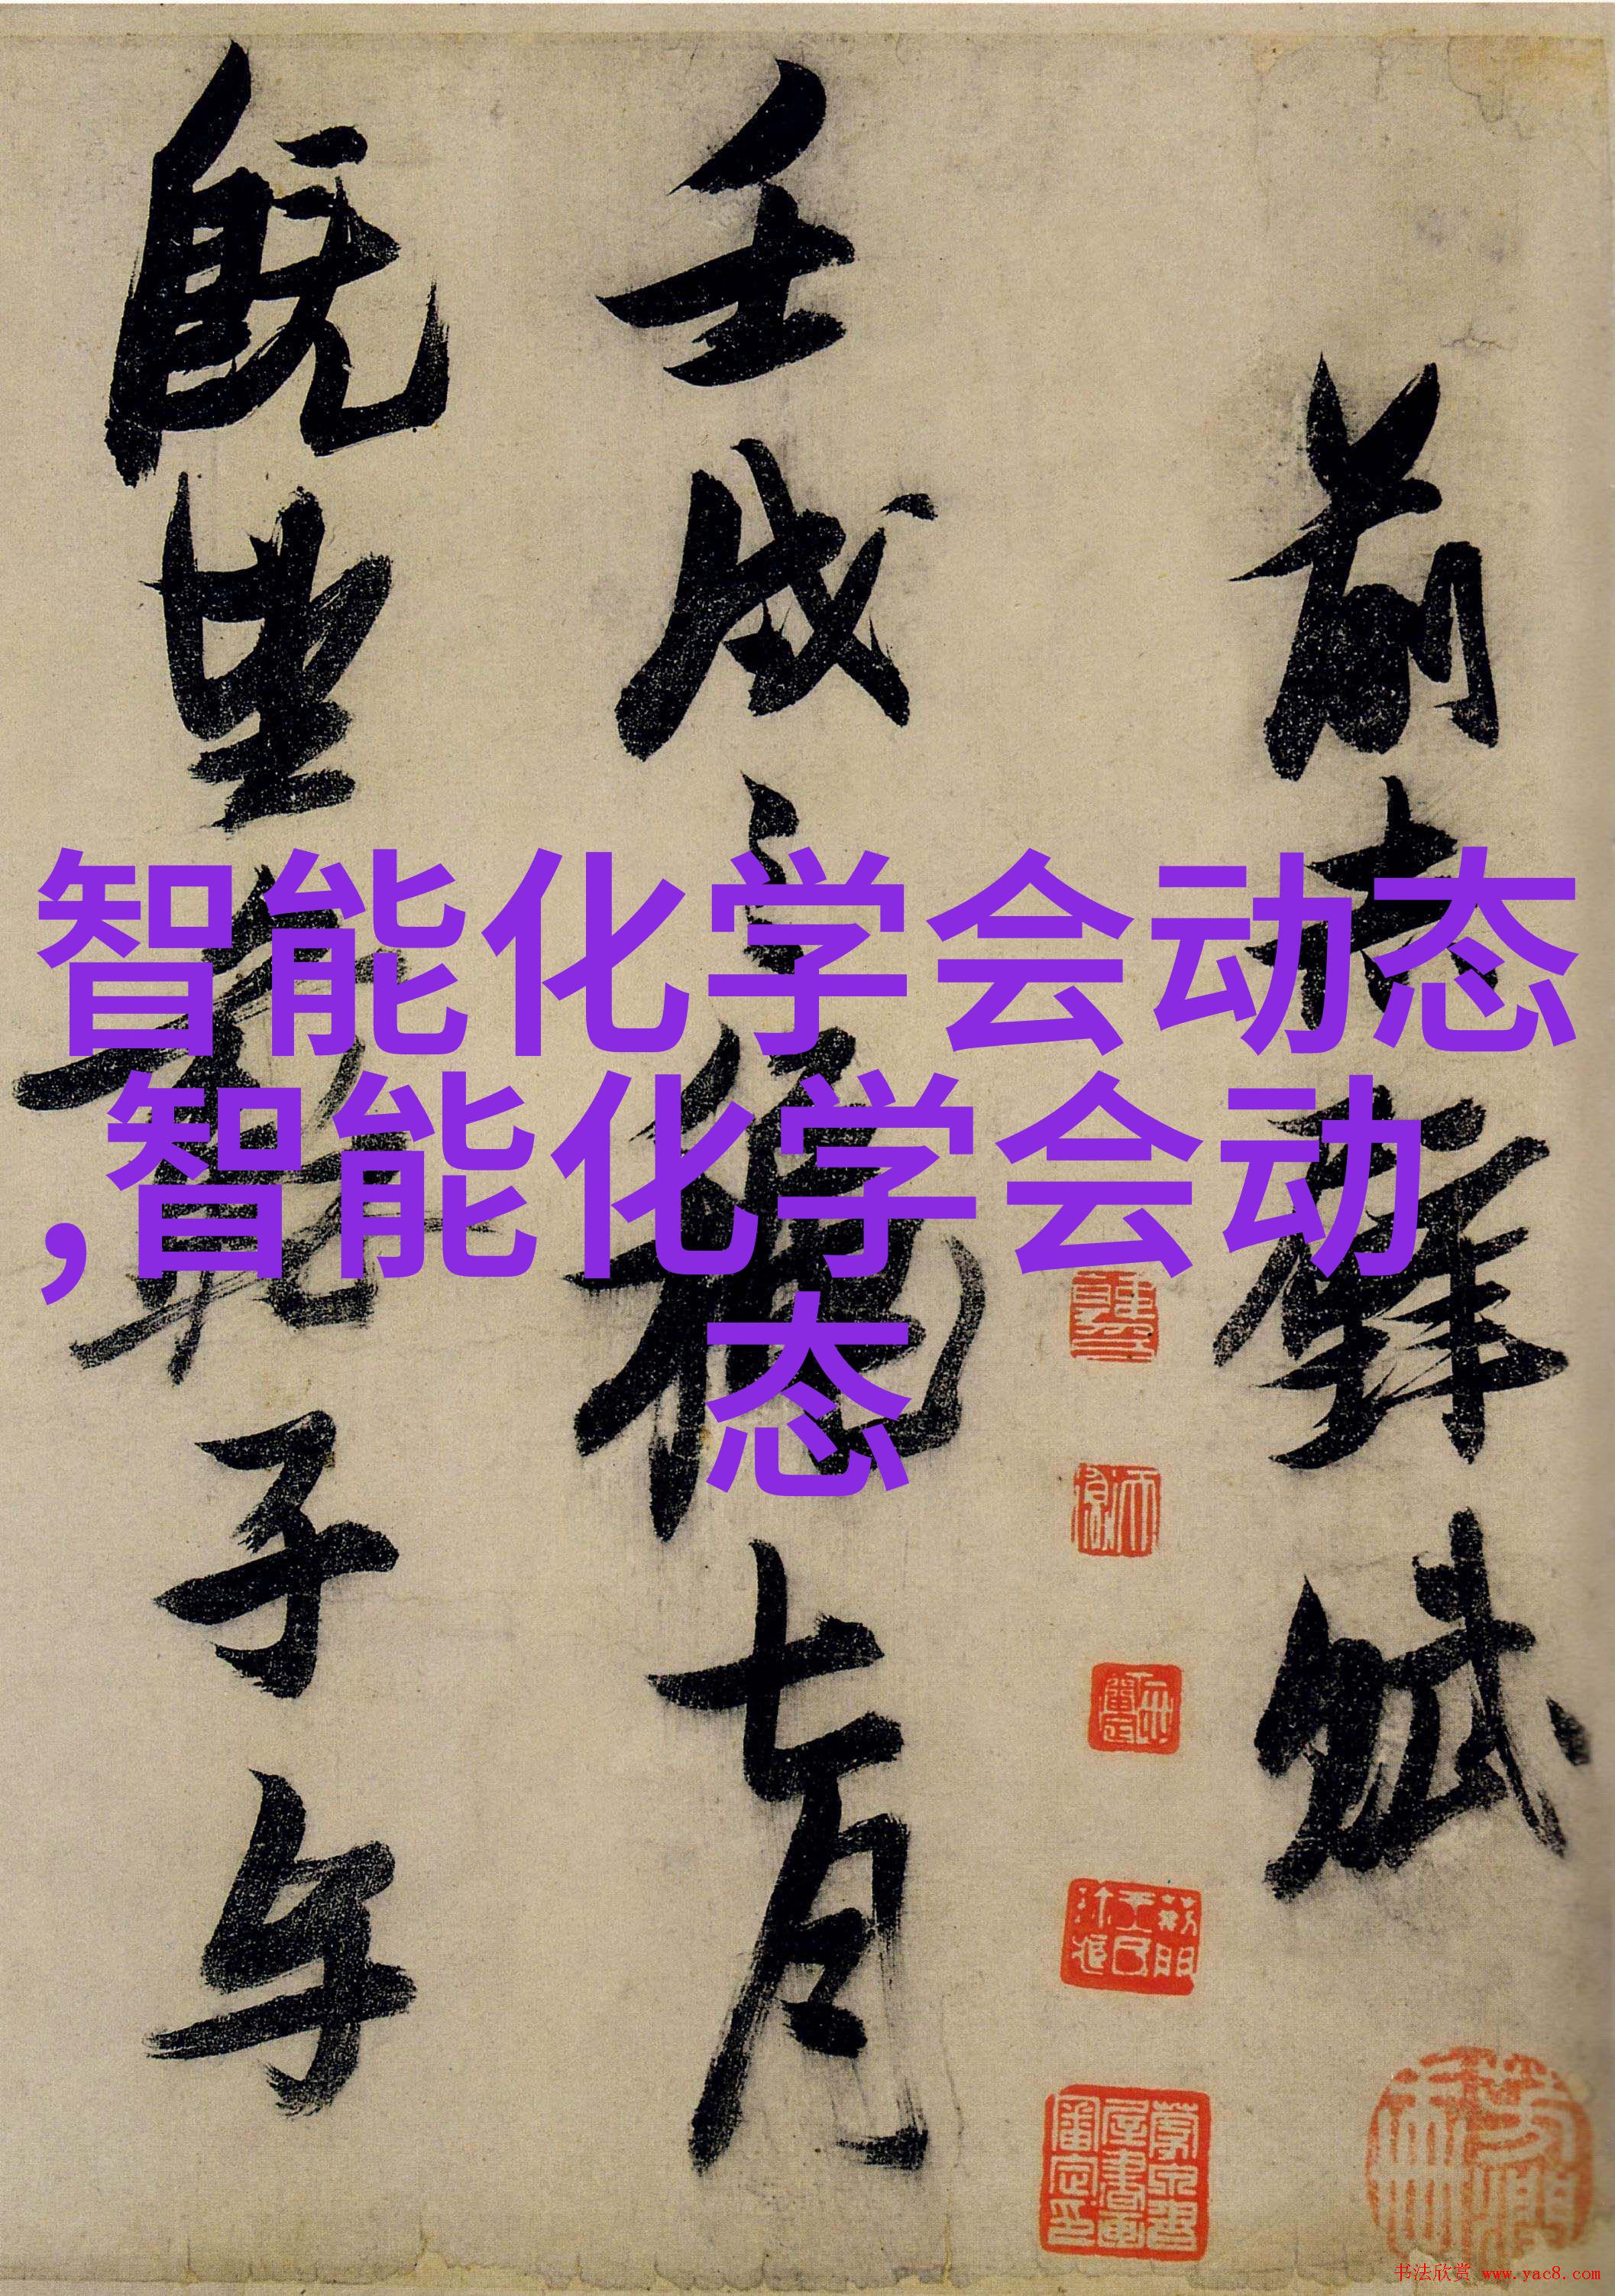 前赤壁賦
壬戌之秋七月
既望蘇子与
智能化学会动态
,智能化学会动
态
书法欣赏 www.yac8.com